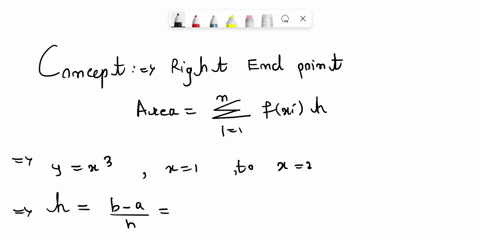 Concept :=> Right End point
Area = n∑i=1 f(xi) h
=> y = x³ , x=1 , to x=2
=> h = b-a/n =